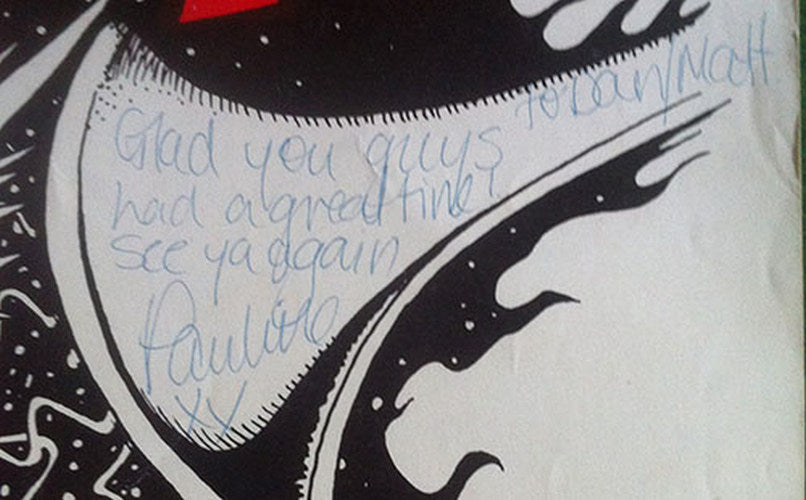 To Dan/Matt
Glad you guys
had a great time!
see ya again
Pauline
XX